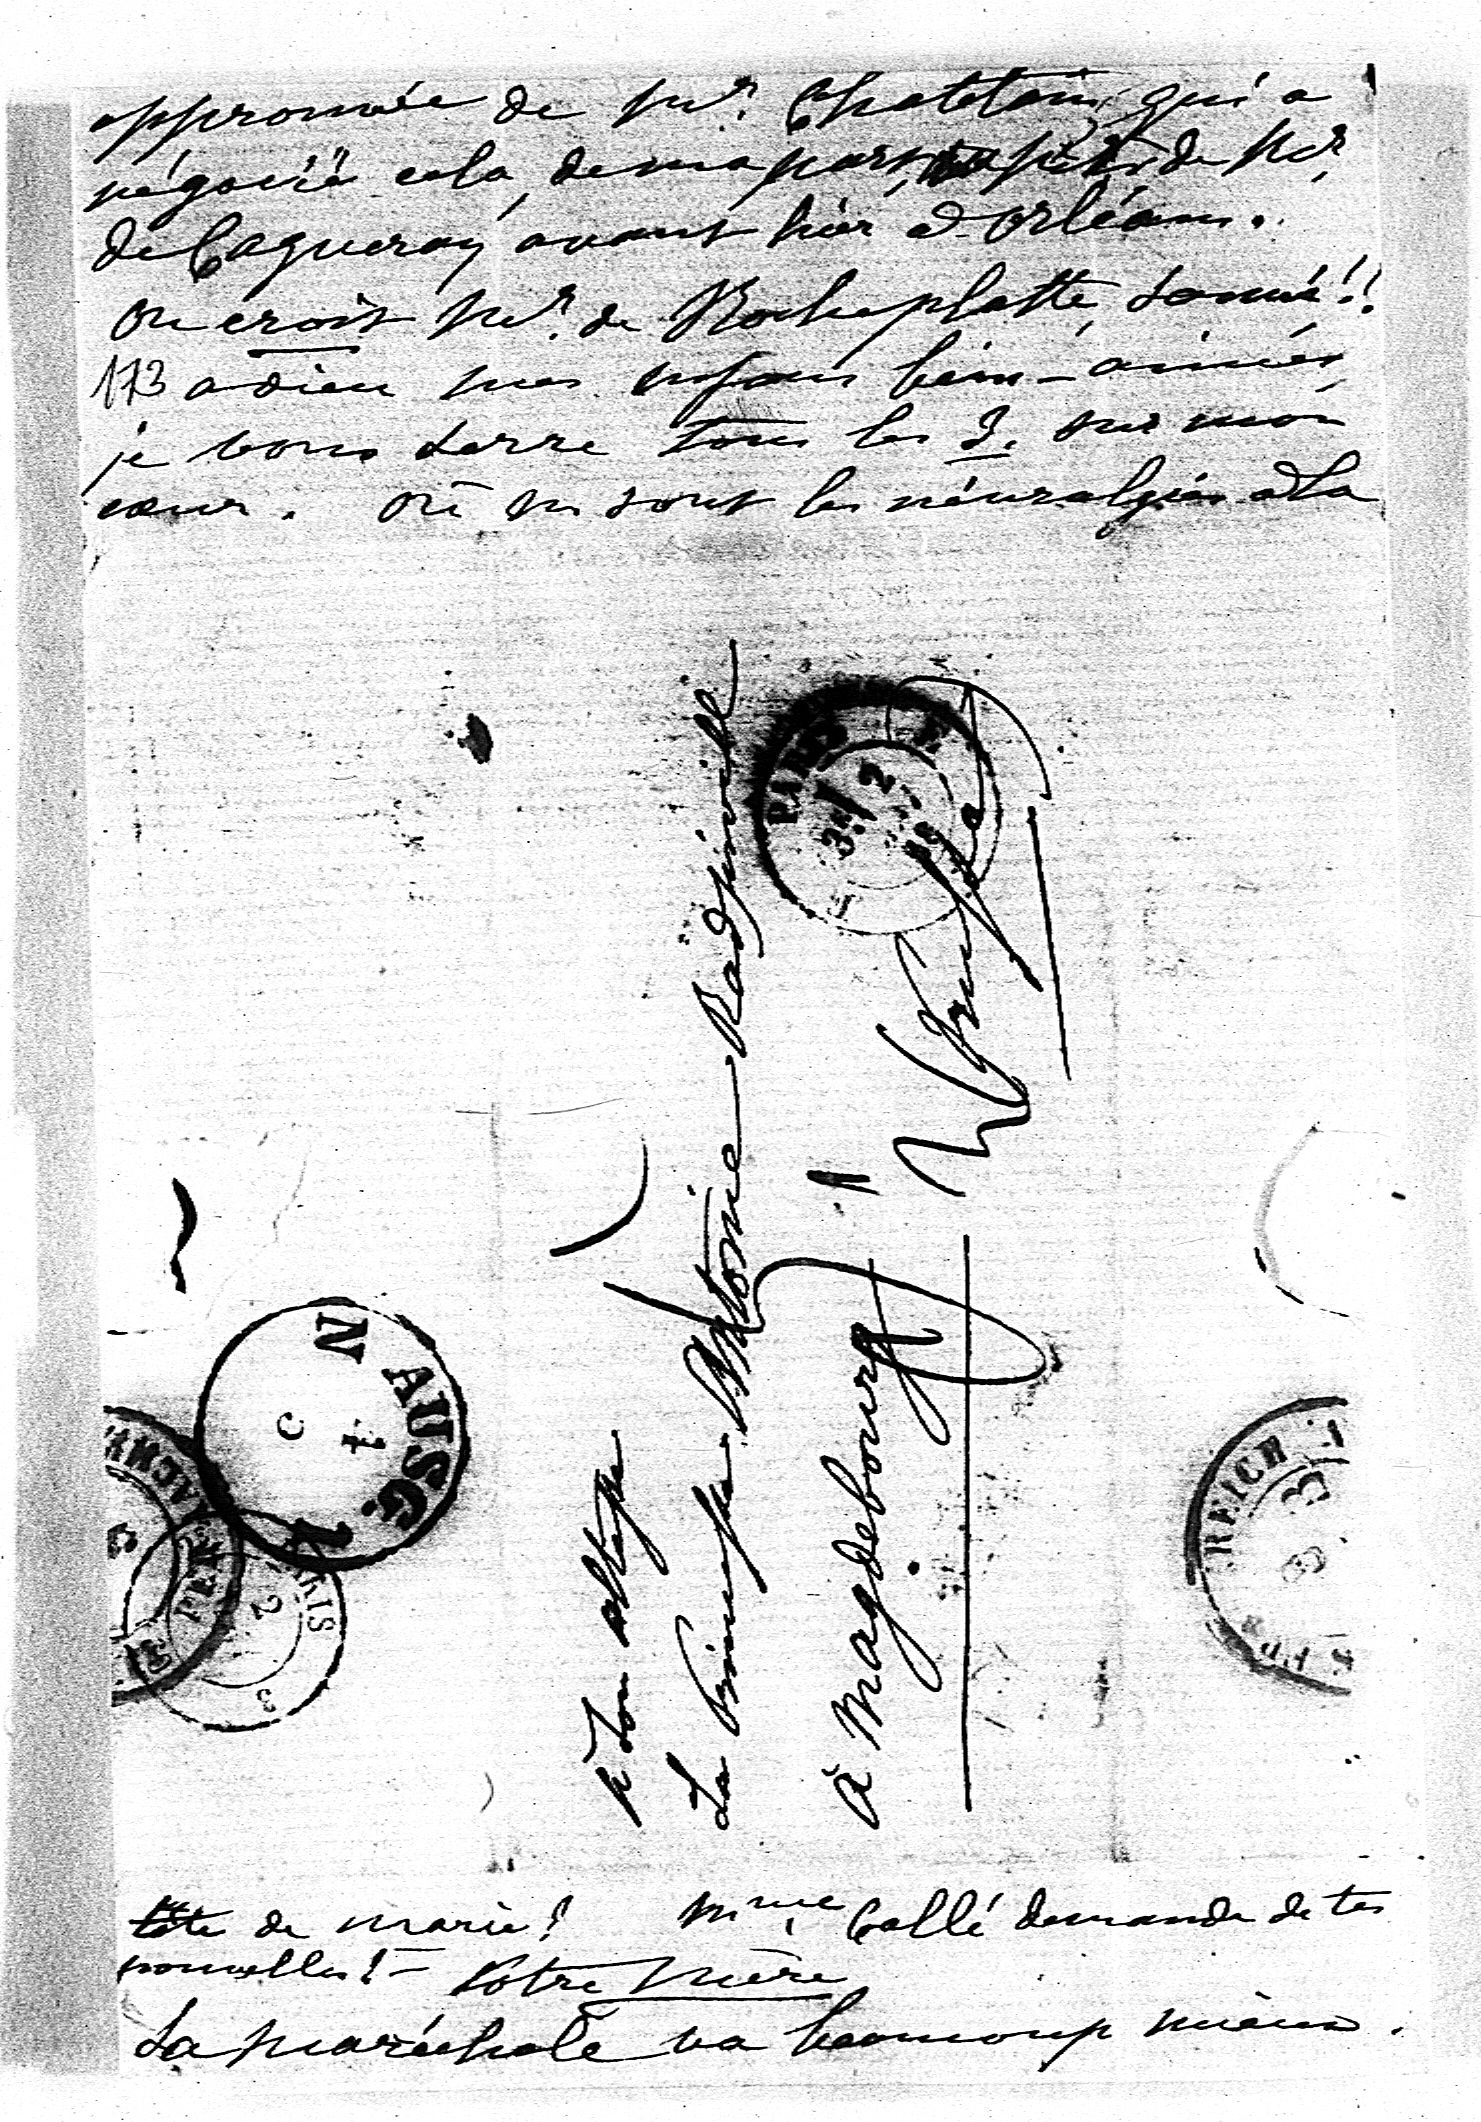 approuvée de Mr. Chatelain, qui a
négocié cela, de ma part, de Mr
de Caqueray avant hier à Orléans.
On croit Mr. de Rocheplatte sauvé!!
173 adieu mes enfans bien-aimés
je vous serre tous les 3. sur mon
cœur. Où en sont les névralgies à la
PARIS
A Son Altesse
La Princesse Antonie Radziwill
à Magdebourg
N AUSG. 1
PARIS
2
REICH
tête de Marie? Mme Collé demande de tes
nouvelles! – Votre Mère
La Maréchale va beaucoup mieux.